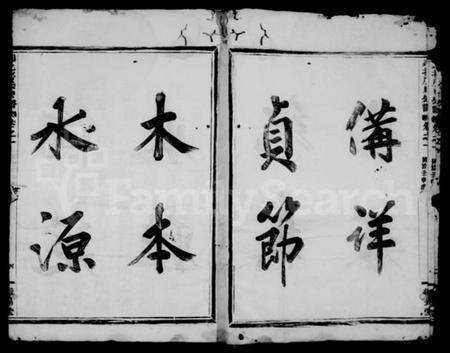 備詳
貞節
木本
水源
FamilySearch